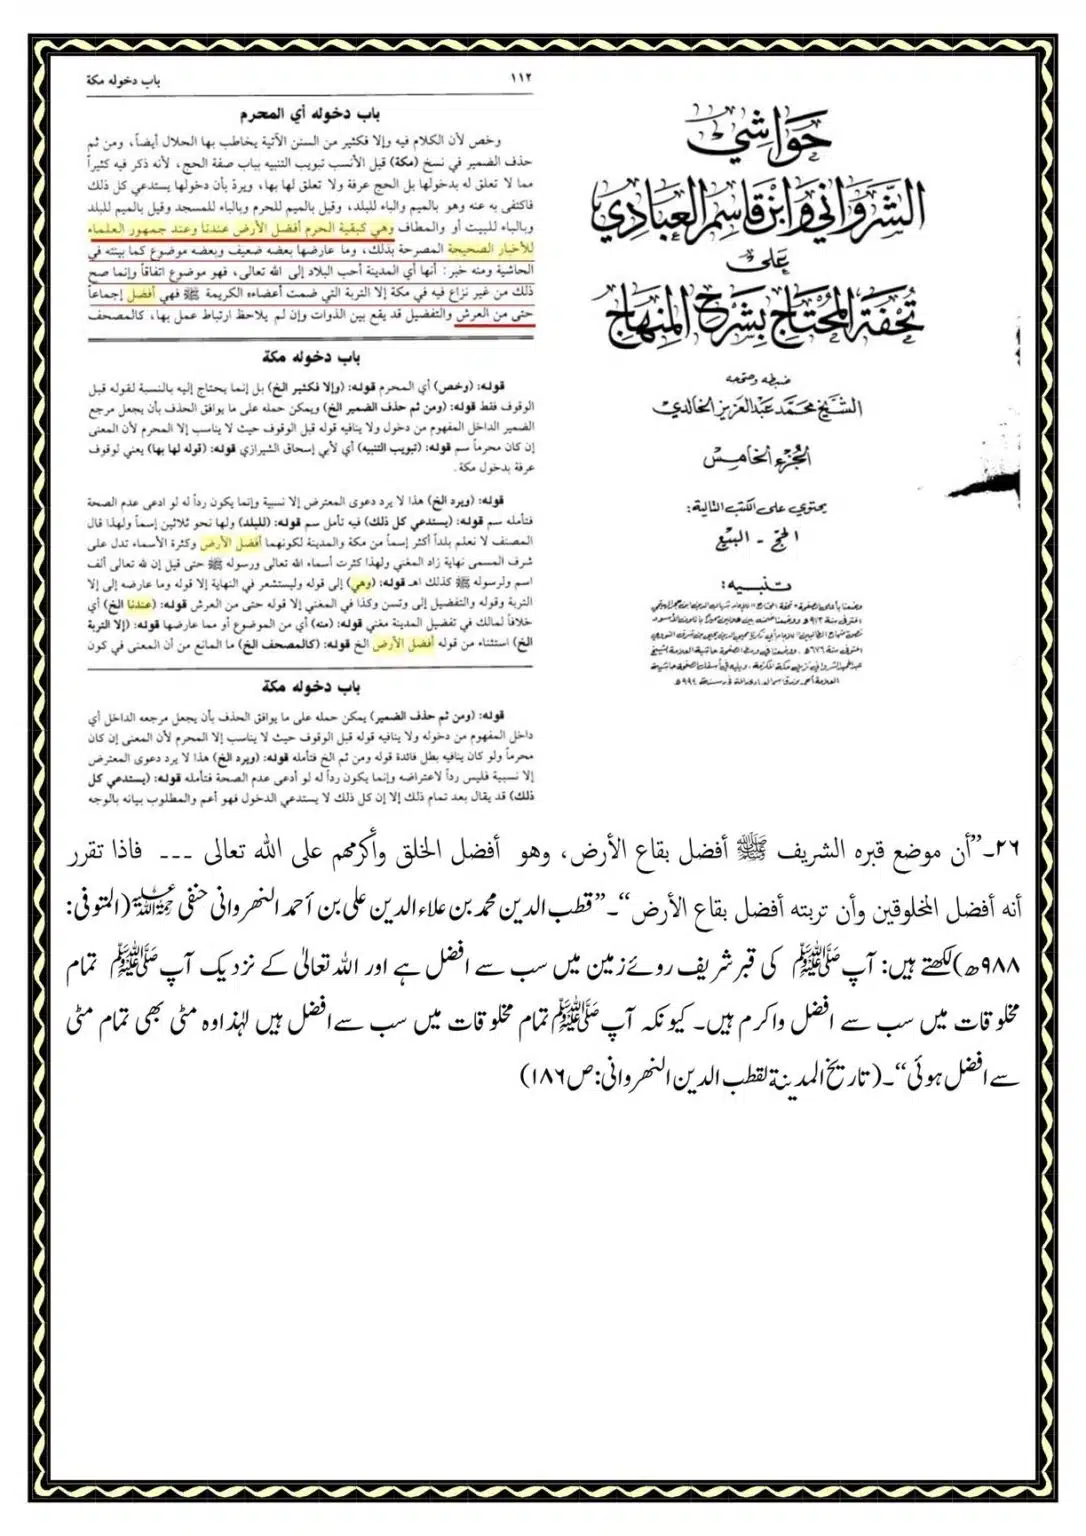 باب دخوله مكة
١١٢
باب دخوله أي المحرم
وخص لأن الكلام فيه وإلا فكثير من السنن الآتية يخاطب بها الحلال أيضاً، ومن ثم
حذف الضمير في نسخ (مكة) قيل الأنسب تبويب التنبيه بباب صفة الحج، لأنه ذكر فيه كثيراً
مما لا تعلق له بدخولها بل الحج عرفة ولا تعلق لها بها، ويردّ بأن دخولها يستدعي كل ذلك
فاكتفى به عنه وهو بالميم والباء للبلد، وقيل بالميم للحرم وبالباء للمسجد وقيل بالميم للبلد
وبالباء للبيت أو والمطاف وهي كبقية الحرم أفضل الأرض عندنا وعند جمهور العلماء
للأخبار الصحيحة المصرحة بذلك، وما عارضها بعضه ضعيف وبعضه موضوع كما بينته في
الحاشية ومنه خبر: أنها أي المدينة أحب البلاد إلى الله تعالى، فهو موضوع اتفاقاً وإنما صح
ذلك من غير نزاع فيه في مكة إلا التربة التي ضمت أعضاءه الكريمة ﷺ فهي أفضل إجماعاً
حتى من العرش والتفضيل قد يقع بين الذوات وإن لم يلاحظ ارتباط عمل بها، كالمصحف
باب دخوله مكة
قوله: (وخص) أي المحرم قوله: (وإلا فكثير الخ) بل إنما يحتاج إليه بالنسبة لقوله قبل
الوقوف فقط قوله: (ومن ثم حذف الضمير الخ) ويمكن حمله على ما يوافق الحذف بأن يجعل مرجع
الضمير الداخل المفهوم من دخول ولا ينافيه قوله قبل الوقوف حيث لا يناسب إلا المحرم لأن المعنى
إن كان محرماً سم قوله: (تبويب التنبيه) أي لأبي إسحاق الشيرازي قوله: (قوله لها بها) يعني لوقوف
عرفة بدخول مكة.
قوله: (ويرد الخ) هذا لا يرد دعوى المعترض إلا نسبية وإنما يكون رداً له لو ادعى عدم الصحة
فتأمله سم قوله: (يستدعي كل ذلك) فيه تأمل سم قوله: (للبلد) ولها نحو ثلاثين إسماً ولهذا قال
المصنف لا نعلم بلداً أكثر إسماً من مكة والمدينة لكونهما أفضل الأرض وكثرة الأسماء تدل على
شرف المسمى نهاية زاد المغني ولهذا كثرت أسماء الله تعالى ورسوله ﷺ حتى قيل إن لله تعالى ألف
اسم ولرسوله ﷺ كذلك اهـ قوله: (وهي) إلى قوله وليستشعر في النهاية إلا قوله وما عارضه إلى إلا
التربة وقوله والتفضيل إلى وتسن وكذا في المغني إلا قوله حتى من العرش قوله: (عندنا الخ) أي
خلافاً لمالك في تفضيل المدينة مغني قوله: (منه) أي من الموضوع أو مما عارضها قوله: (إلا التربة
الخ) استثناء من قوله أفضل الأرض الخ قوله: (كالمصحف الخ) ما المانع من أن المعنى في كون
باب دخوله مكة
قوله: (ومن ثم حذف الضمير) يمكن حمله على ما يوافق الحذف بأن يجعل مرجعه الداخل أي
داخل المفهوم من دخوله ولا ينافيه قوله قبل الوقوف حيث لا يناسب إلا المحرم لأن المعنى إن كان
محرماً ولو كان ينافيه بطل فائدة قوله ومن ثم الخ فتأمله قوله: (ويرد الخ) هذا لا يرد دعوى المعترض
إلا نسبية فليس رداً لاعتراضه وإنما يكون رداً له لو أدعى عدم الصحة فتأمله قوله: (يستدعي كل
ذلك) قد يقال بعد تمام ذلك إلا إن كل ذلك لا يستدعي الدخول فهو أعم والمطلوب بيانه بالوجه
حواشي
الشرواني وابن قاسم العبادي
على
تحفة المحتاج بشرح المنهاج
ضبطه وصححه
الشيخ محمد عبد العزيز الخالدي
الجزء الخامس
يحتوي على الكتب التالية:
الحج - البيع
تنبيه:
٢٦۔”أن موضع قبره الشريف ﷺ أفضل بقاع الأرض، وهو أفضل الخلق وأكرمهم على الله تعالى ۔۔۔ فاذا تقرر
أنه أفضل المخلوقين وأن تربته أفضل بقاع الأرض“۔”قطب الدین محمد بن علاء الدین علی بن أحمد النھروانی حنفی رحمۃ اللہ علیہ (المتوفی:
۹۸۸ھ) لکھتے ہیں: آپ ﷺ کی قبر شریف روئے زمین میں سب سے افضل ہے اور اللہ تعالیٰ کے نزدیک آپ ﷺ تمام
مخلوقات میں سب سے افضل واکرم ہیں۔ کیونکہ آپ ﷺ تمام مخلوقات میں سب سے افضل ہیں لہٰذا وہ مٹی بھی تمام مٹی
سے افضل ہوئی“۔ (تاریخ المدینۃ لقطب الدین النھروانی: ص۱۸۶)